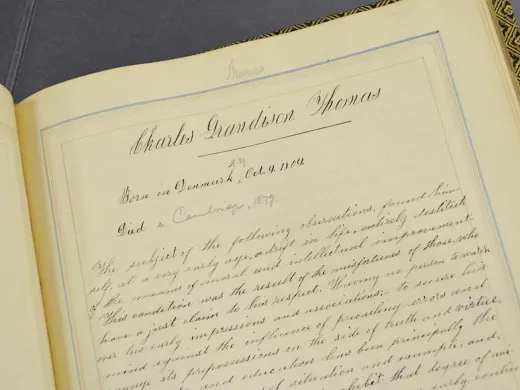 Thomas
Charles Grandison Thomas
N.Y.
Born in Denmark, Oct. 9. 1804
Died in Cambridge, 1879.
The subject of the following observations, found him-
self, at a very early age, adrift in life, entirely destitute
of the means of moral and intellectual improvement.
This condition was the result of the misfortunes of those, who
have a just claim to his respect. Having no person towatch
over his early impressions and associations;— to secure his
mind against the influence of prevailing errors and
engage its prepossessions on the side of truth and virtue,
and education has been principally the
of situation and example, and,
exhibit that degree of
early